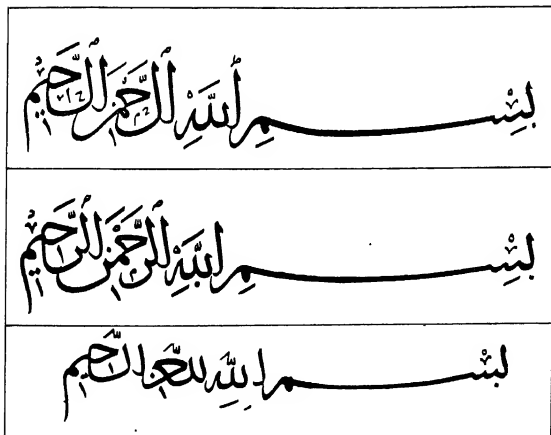 بِسْمِ اللَّهِ الرَّحْمَٰنِ الرَّحِيمِ
بِسْمِ اللَّهِ الرَّحْمَٰنِ الرَّحِيمِ
بِسْمِ اللَّهِ الرَّحْمَٰنِ الرَّحِيمِ